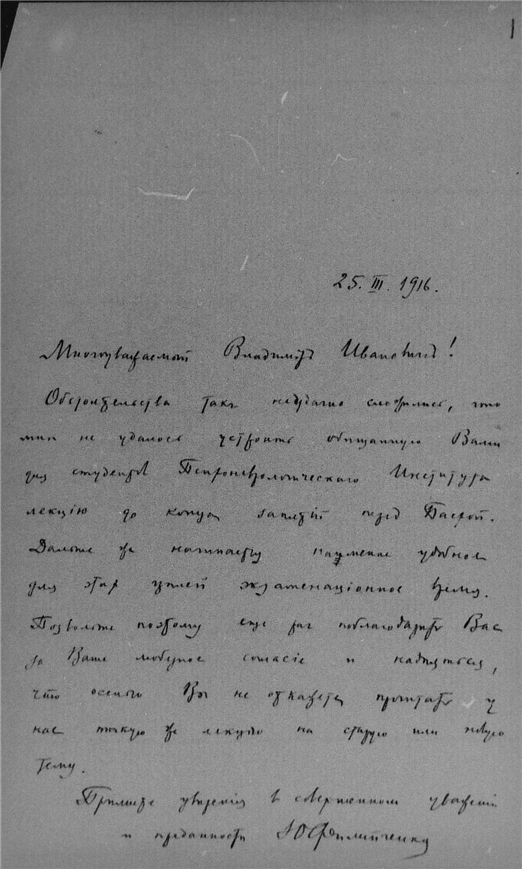 1
25. III. 1916.
Многоуважаемый Владимiръ Ивановичъ!
Обстоятельства такъ неудачно сложились, что
мнѣ не удалось устроить обѣщанную Вами
для студентовъ Психоневрологическаго Института
лекцію до конца занятій передъ Пасхой.
Дальше же начинается наименѣе удобное
для этих цѣлей экзаменаціонное время.
Позвольте поэтому еще раз поблагодарить Вас
за Ваше любезное согласіе и надѣяться,
что осенью Вы не откажете прочитать у
нас такую же лекцію на старую или новую
тему.
Примите увѣренія в совершенном уваженіи
и преданности ЮФилипченко